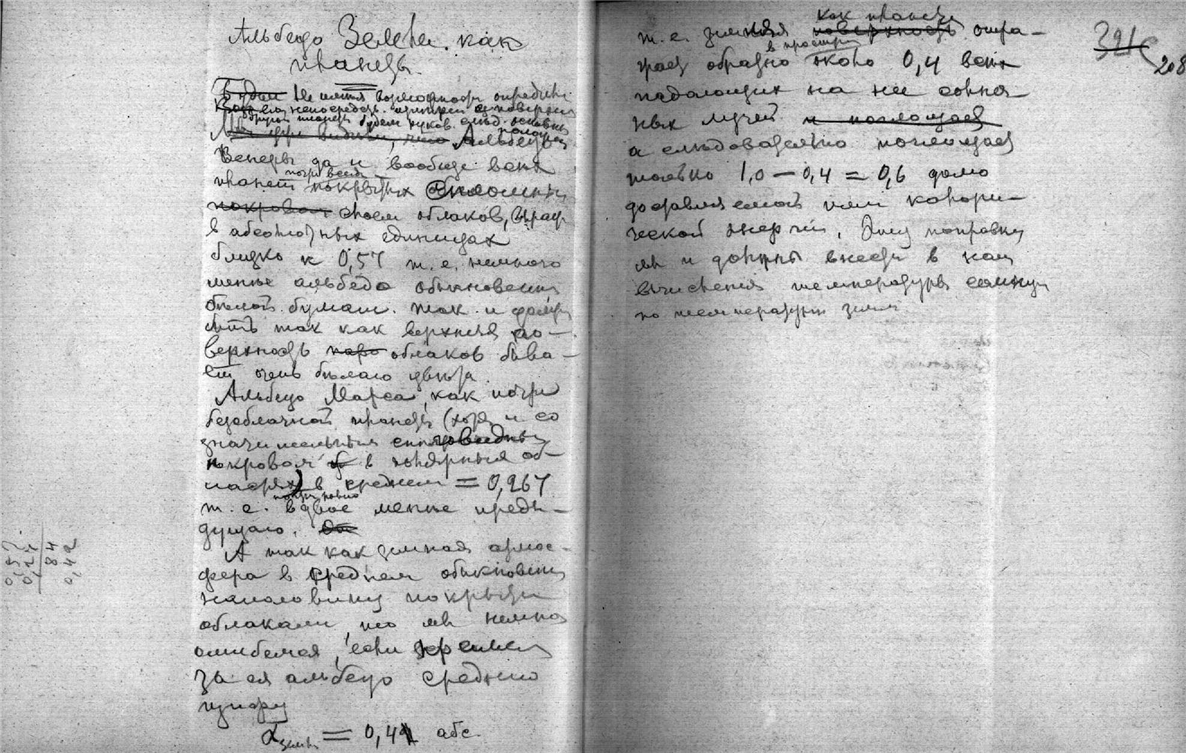 Альбедо Земли как
планеты.
Не имея возможности определить
Альбедо
Венеры да и вообще всех
планет почти всегда покрытых сплошным
слоем облаков, выраж.
в абсолютных единицах
близко к 0,57 т. е. немного
менше альбедо обыкновенн
белой бумаги. Так и должно
быть так как верхняя по-
верхность облаков быва-
ет очень белаго цвета.
Альбедо Марса, как почти
безоблачной планеты (хотя и со
значительным снеговым
покровом в полярных об-
ластях) в среднем = 0,267
т. е. почти ровно вдвое менше преды-
дущаго.
А так как земная атмос-
фера в среднем обыкновенно
наполовину покрыта
облаками, то мы немно
ошибемся, если примем
за ея альбедо среднюю
цифру
α земли = 0,42 абс.
0,57
0,27
84
0,42
т. е. земля как планета отра-
жает обратно в простр. около 0,4 всех
падающих на нее солнеч-
ных лучей и поглощает
а следовательно поглощает
только 1,0 — 0,4 = 0,6 долю
доставляемой ими калори-
ческой энергии. Эту поправку
мы и должны внести в наш
вычисления температуры солнца
по температуре земли
391
208